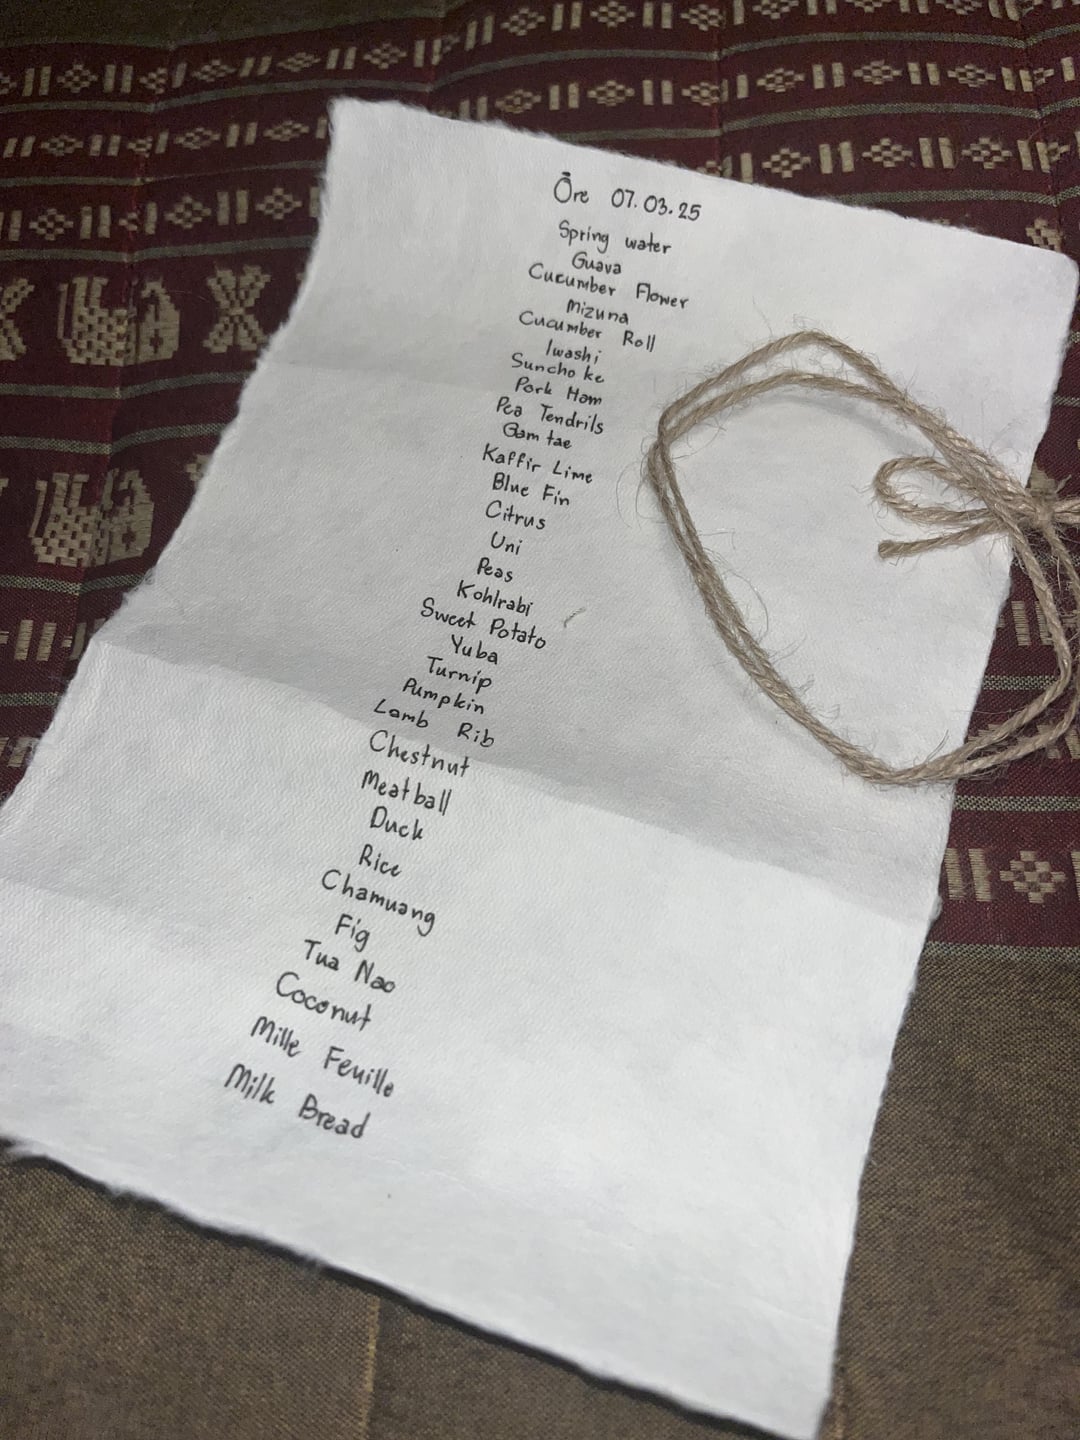 Ōre 07.03.25
Spring water
Guava
Cucumber Flower
Mizuna
Cucumber Roll
Iwashi
Sunchoke
Pork Ham
Pea Tendrils
Gamtae
Kaffir Lime
Blue Fin
Citrus
Uni
Peas
Kohlrabi
Sweet Potato
Yuba
Turnip
Pumpkin
Lamb Rib
Chestnut
Meatball
Duck
Rice
Chamuang
Fig
Tua Nao
Coconut
Mille Feuille
Milk Bread